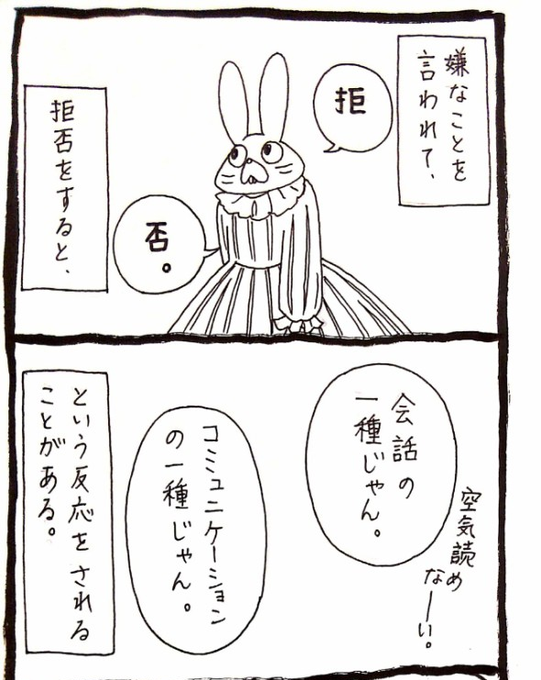 嫌なことを
言われて、
拒
否。
拒否をすると、
空気読め
なーい。
会話の
一種じゃん。
コミュニケーション
の一種じゃん。
という反応をされる
ことがある。